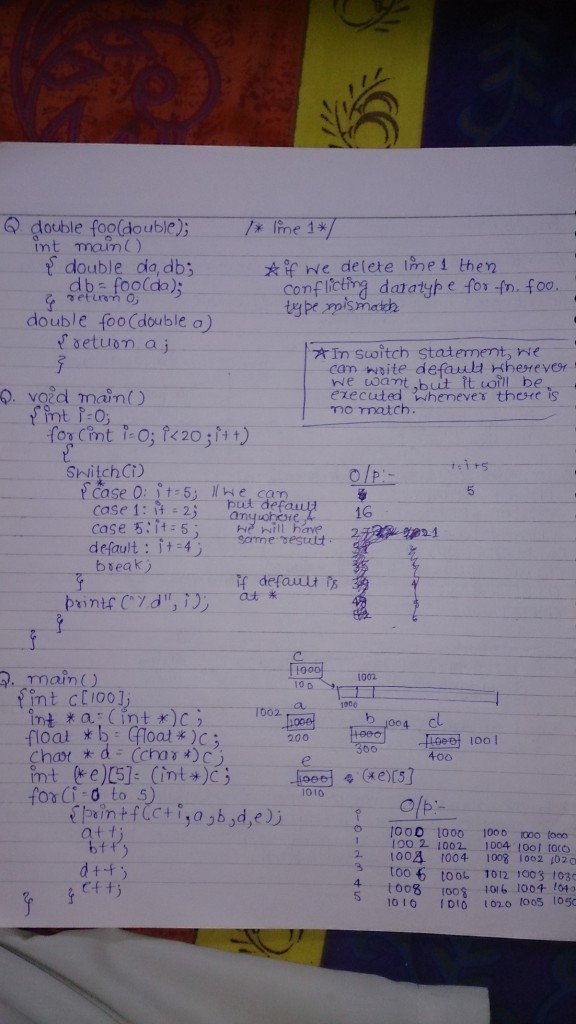 Q. double foo(double); /* line 1*/
int main()
{ double da,db;
db = foo(da);
} return 0;
double foo(double a)
{ return a;
}
★ if we delete line 1 then
conflicting datatype for fn. foo.
type mismatch
★ In switch statement, we
can write default wherever
we want, but it will be
executed whenever there is
no match.
Q. void main()
{ int i=0;
for(int i=0; i<20; i++)
{
switch(i)
{ * case 0: i+=5;
case 1: i+=2;
case 5: i+=5;
default: i+=4;
break;
}
printf("%d", i);
}
}
// we can
put default
anywhere &
we will have
same result.
if default is
at *
O/p:-
16
21
i=i+5
5
Q. main()
{ int c[100];
int *a=(int *)c;
float *b=(float*)c;
char *d=(char*)c;
int (*e)[5]=(int*)c;
for(i=0 to 5)
{ printf(c+i,a,b,d,e);
a++;
b++;
d++;
e++;
}
}
c
1000
100
1002
1000
a
1002 1000
200
b
1000 1004
300
d
1000 1001
400
e
1000 (*e)[5]
1010
O/p:-
i
0 1000 1000 1000 1000 1000
1 1002 1002 1004 1001 1010
2 1004 1004 1008 1002 1020
3 1006 1006 1012 1003 1030
4 1008 1008 1016 1004 1040
5 1010 1010 1020 1005 1050